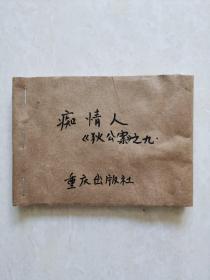 痴情人
《狄公案》之九.
重庆出版社